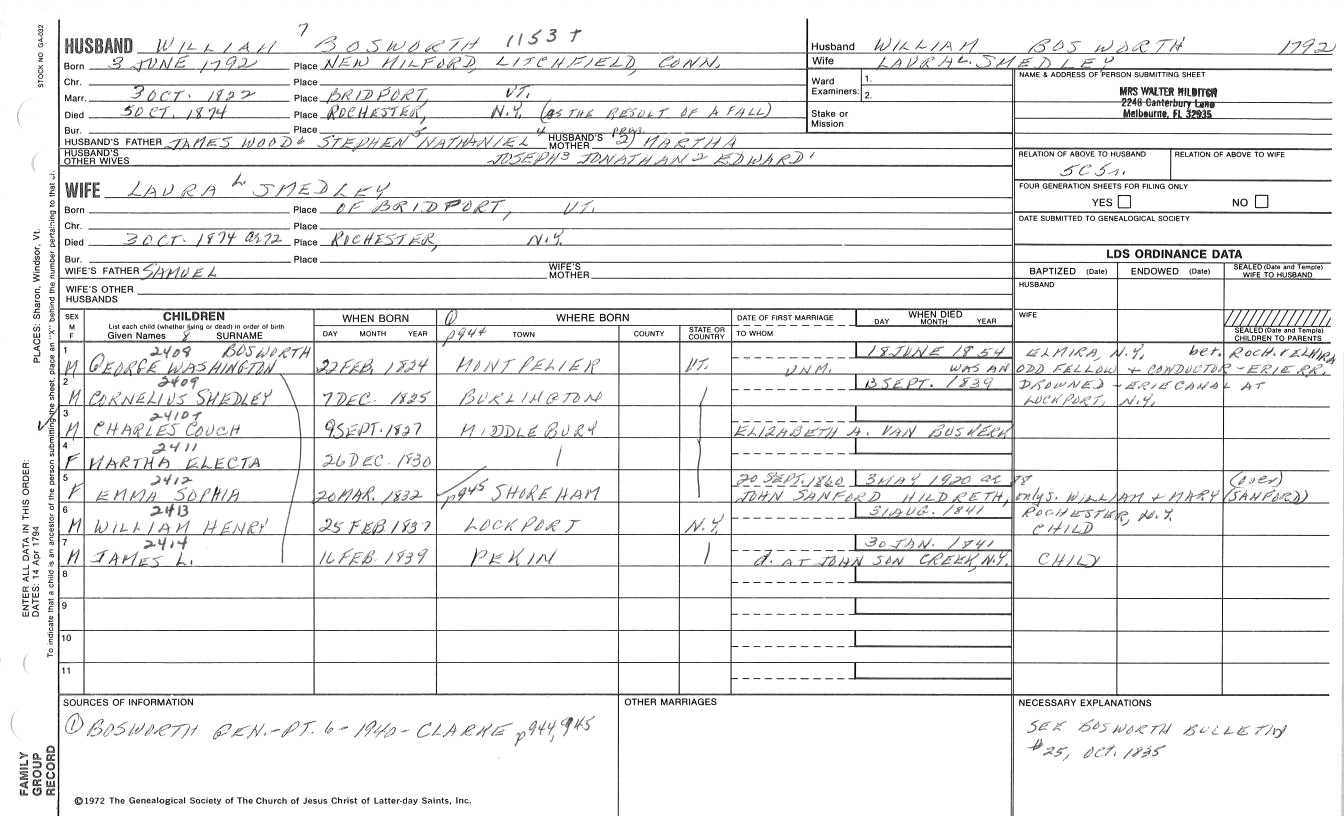 STOCK NO GA-032
HUSBAND WILLIAM 7 BOSWORTH 1153+
Born 3 JUNE 1792 Place NEW MILFORD, LITCHFIELD, CONN.
Chr. Place
Marr. 3 OCT. 1822 Place BRIDPORT VT.
Died 5 OCT. 1874 Place ROCHESTER, N.Y. (as THE RESULT OF A FALL)
Bur. Place
HUSBAND'S FATHER JAMES WOOD 6 STEPHEN 5 NATHANIEL 4 HUSBAND'S MOTHER (2) MARTHA
HUSBAND'S OTHER WIVES JOSEPH 3 JONATHAN 2 EDWARD 1
Husband WILLIAM BOSWORTH 1792
Wife LAURA L. SMEDLEY
Ward Examiners: 1. 2.
Stake or Mission
NAME & ADDRESS OF PERSON SUBMITTING SHEET
MRS WALTER HILDITCH
2248 Canterbury Lane
Melbourne, FL 32935
RELATION OF ABOVE TO HUSBAND RELATION OF ABOVE TO WIFE
5C5r.
FOUR GENERATION SHEETS FOR FILING ONLY
YES NO
DATE SUBMITTED TO GENEALOGICAL SOCIETY
WIFE LAURA L SMEDLEY
Born Place OF BRIDPORT, VT.
Chr. Place
Died 3 OCT. 1874 or 72 Place ROCHESTER, N.Y.
Bur. Place
WIFE'S FATHER SAMUEL WIFE'S MOTHER
WIFE'S OTHER HUSBANDS
LDS ORDINANCE DATA
BAPTIZED (Date) ENDOWED (Date) SEALED (Date and Temple) WIFE TO HUSBAND
HUSBAND
WIFE
SEALED (Date and Temple) CHILDREN TO PARENTS
SEX M F CHILDREN
List each child (whether living or dead) in order of birth
Given Names 8 SURNAME
WHEN BORN DAY MONTH YEAR
① p944 WHERE BORN TOWN COUNTY STATE OR COUNTRY
DATE OF FIRST MARRIAGE TO WHOM
WHEN DIED DAY MONTH YEAR
1 2408 BOSWORTH 18 JUNE 1854 ELMIRA, N.Y. bet. ROCH. & ELMIRA
M GEORGE WASHINGTON 22 FEB. 1824 MONTPELIER VT. UNM. WAS AN ODD FELLOW + CONDUCTOR - ERIE RR.
2 2409 13 SEPT. 1839 DROWNED - ERIE CANAL AT
M CORNELIUS SMEDLEY 7 DEC. 1825 BURLINGTON LOCKPORT, N.Y.
3 2410+
M CHARLES COUCH 9 SEPT. 1827 MIDDLEBURY ELIZABETH A. VAN BUSKERK
4 2411
F MARTHA ELECTA 26 DEC. 1830
5 2412 20 SEPT. 1860 3 MAY 1920 or 18 (over)
F EMMA SOPHIA 20 MAR. 1832 p945 SHOREHAM JOHN SANFORD HILDRETH, only s. WILLIAM + MARY (SANFORD)
6 2413 31 AUG. 1841 ROCHESTER, N.Y.
M WILLIAM HENRY 25 FEB 1837 LOCKPORT N.Y. CHILD
7 2414 30 JAN. 1841
M JAMES L. 16 FEB. 1839 PEKIN d. AT JOHNSON CREEK, N.Y. CHILD
8
9
10
11
SOURCES OF INFORMATION
① BOSWORTH GEN.-PT. 6-1940-CLARKE p944, 945
OTHER MARRIAGES
NECESSARY EXPLANATIONS
SEE BOSWORTH BULLETIN
#25, OCT. 1835
©1972 The Genealogical Society of The Church of Jesus Christ of Latter-day Saints, Inc.
FAMILY GROUP RECORD
ENTER ALL DATA IN THIS ORDER:
DATES: 14 Apr 1794
PLACES: Sharon, Windsor, Vt.
To indicate that a child is an ancestor of the person submitting the sheet, place an "X" behind the number pertaining to that